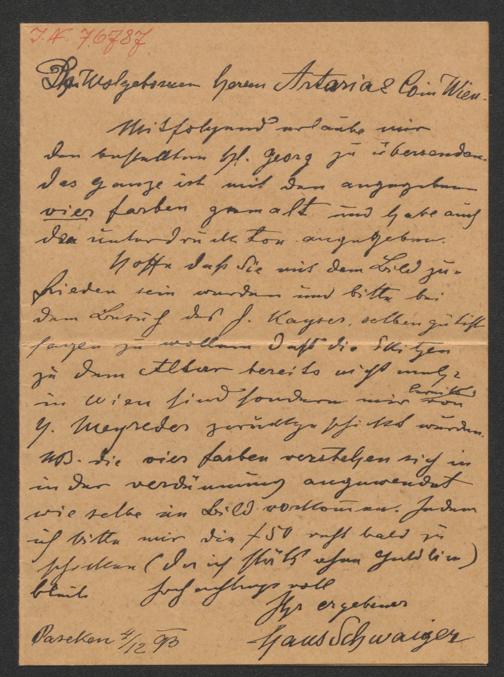 I.N. 76787
Wolgebornen Herrn Artaria & Co in Wien.
Mitfolgend erlaube mir
den bestellten hl. Georg zu übersenden.
Das ganze ist mit den angegeben
vier farben gemalt und habe auch
den unterdruck ton angegeben.
Hoffe daß Sie mit dem Bild zu-
frieden sein werden und bitte bei
dem Besuch des H. Kayser, selben gütigst
sagen zu wollen daß die Skitzen
zu dem Altar bereits nicht mehr
in Wien sind sondern mir bereits von
H. Mayreder zurückgeschickt wurden.
NB. die vier farben verstehen sich in
in der verdünnung angewendet
wie selbe im Bild vorkommen. Indem
ich bitte mir die f 50 recht bald zu
schicken (da ich stäts ohne Guldlin)
bleib hochachtungsvoll
Ihr ergebener
Paseken 4/12 93 Hans Schwaiger